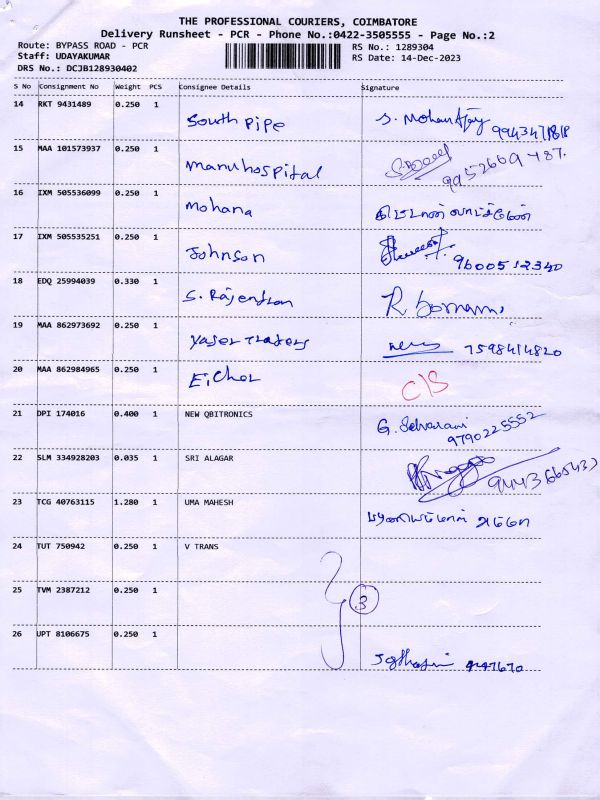 THE PROFESSIONAL COURIERS, COIMBATORE
Delivery Runsheet - PCR - Phone No.:0422-3505555 - Page No.:2
Route: BYPASS ROAD - PCR
RS No.: 1289304
Staff: UDAYAKUMAR
RS Date: 14-Dec-2023
DRS No.: DCJB128930402
S No Consignment No Weight PCS Consignee Details Signature
14 RKT 9431489 0.250 1 South pipe S. Mohan
15 MAA 101573937 0.250 1 Manuhospital 9952669487.
16 IXM 505536099 0.250 1 Mohana
17 IXM 505535251 0.250 1 Johnson 9600512340
18 EDQ 25994039 0.330 1 S. Rajendran
19 MAA 862973692 0.250 1 Yaser Traders 7598414820
20 MAA 862984965 0.250 1 Eicher C/S
21 DPI 174016 0.400 1 NEW QBITRONICS G. Selvarani 9790225552
22 SLM 334928203 0.035 1 SRI ALAGAR
23 TCG 40763115 1.280 1 UMA MAHESH
24 TUT 750942 0.250 1 V TRANS
25 TVM 2387212 0.250 1
3
26 UPT 8106675 0.250 1